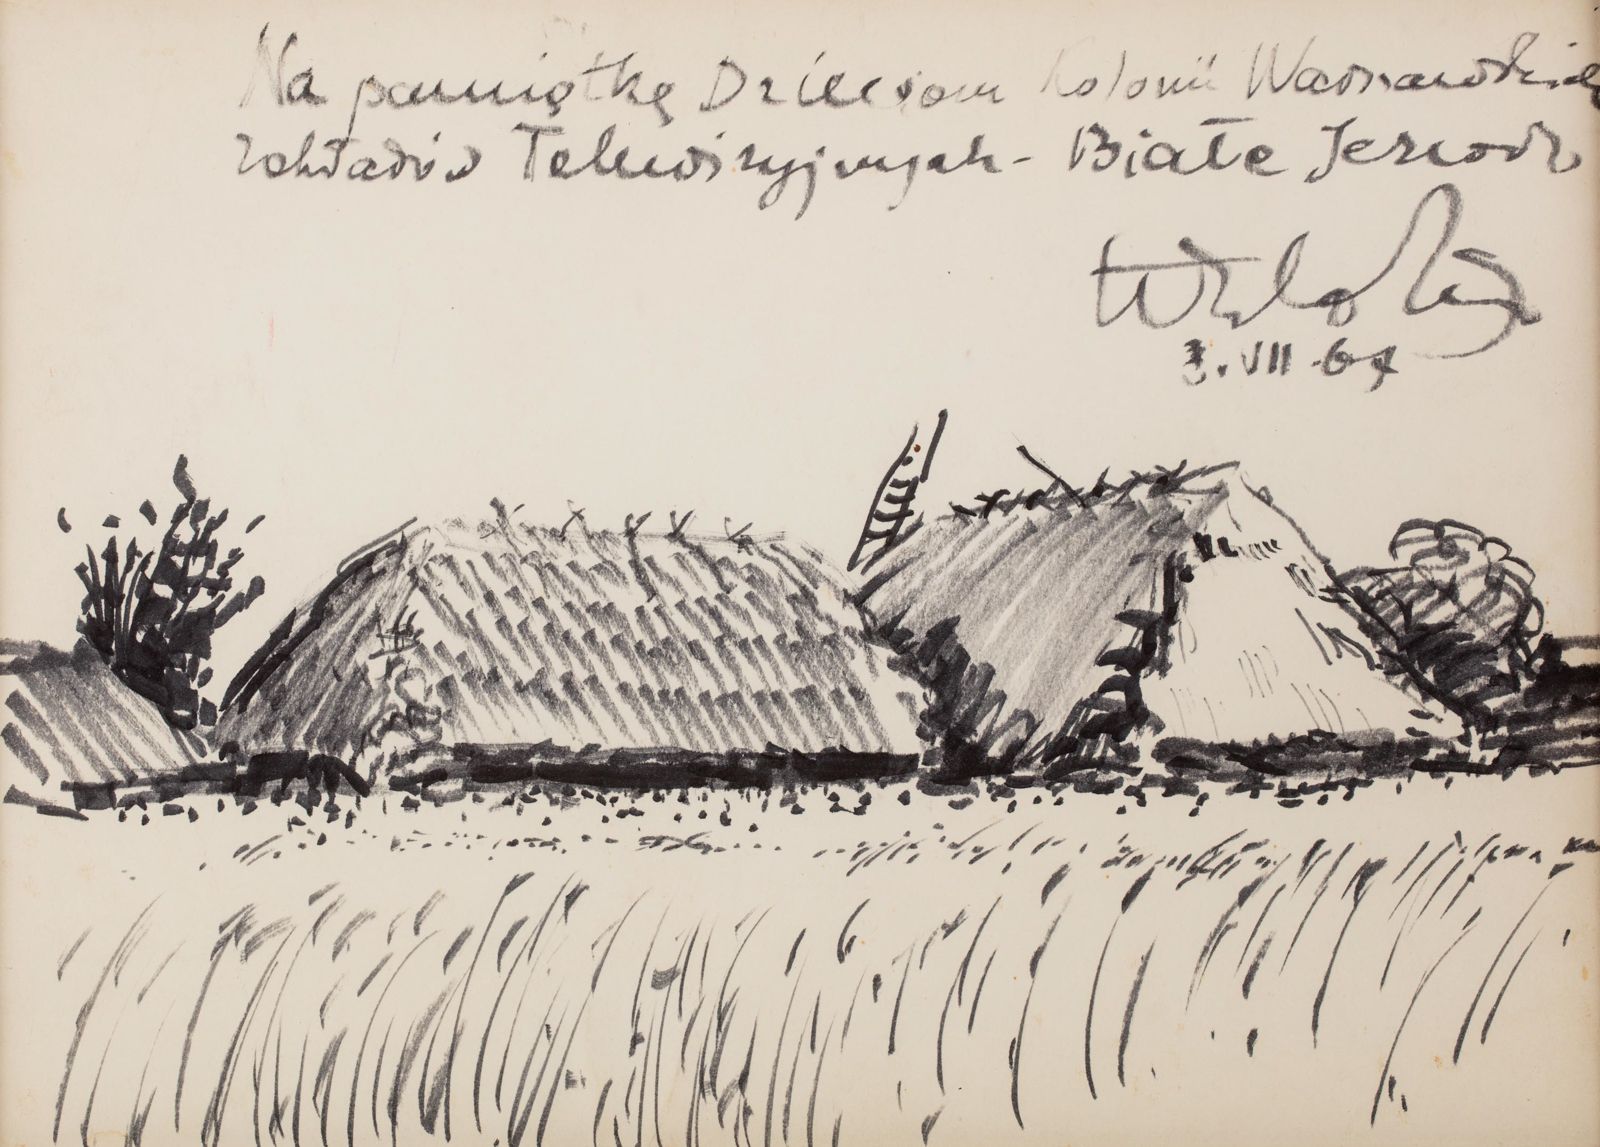 Na pamiątkę Dzieciom Kolonii Warszawskich
Zakładów Telewizyjnych - Białe Jezioro
3.VII 67